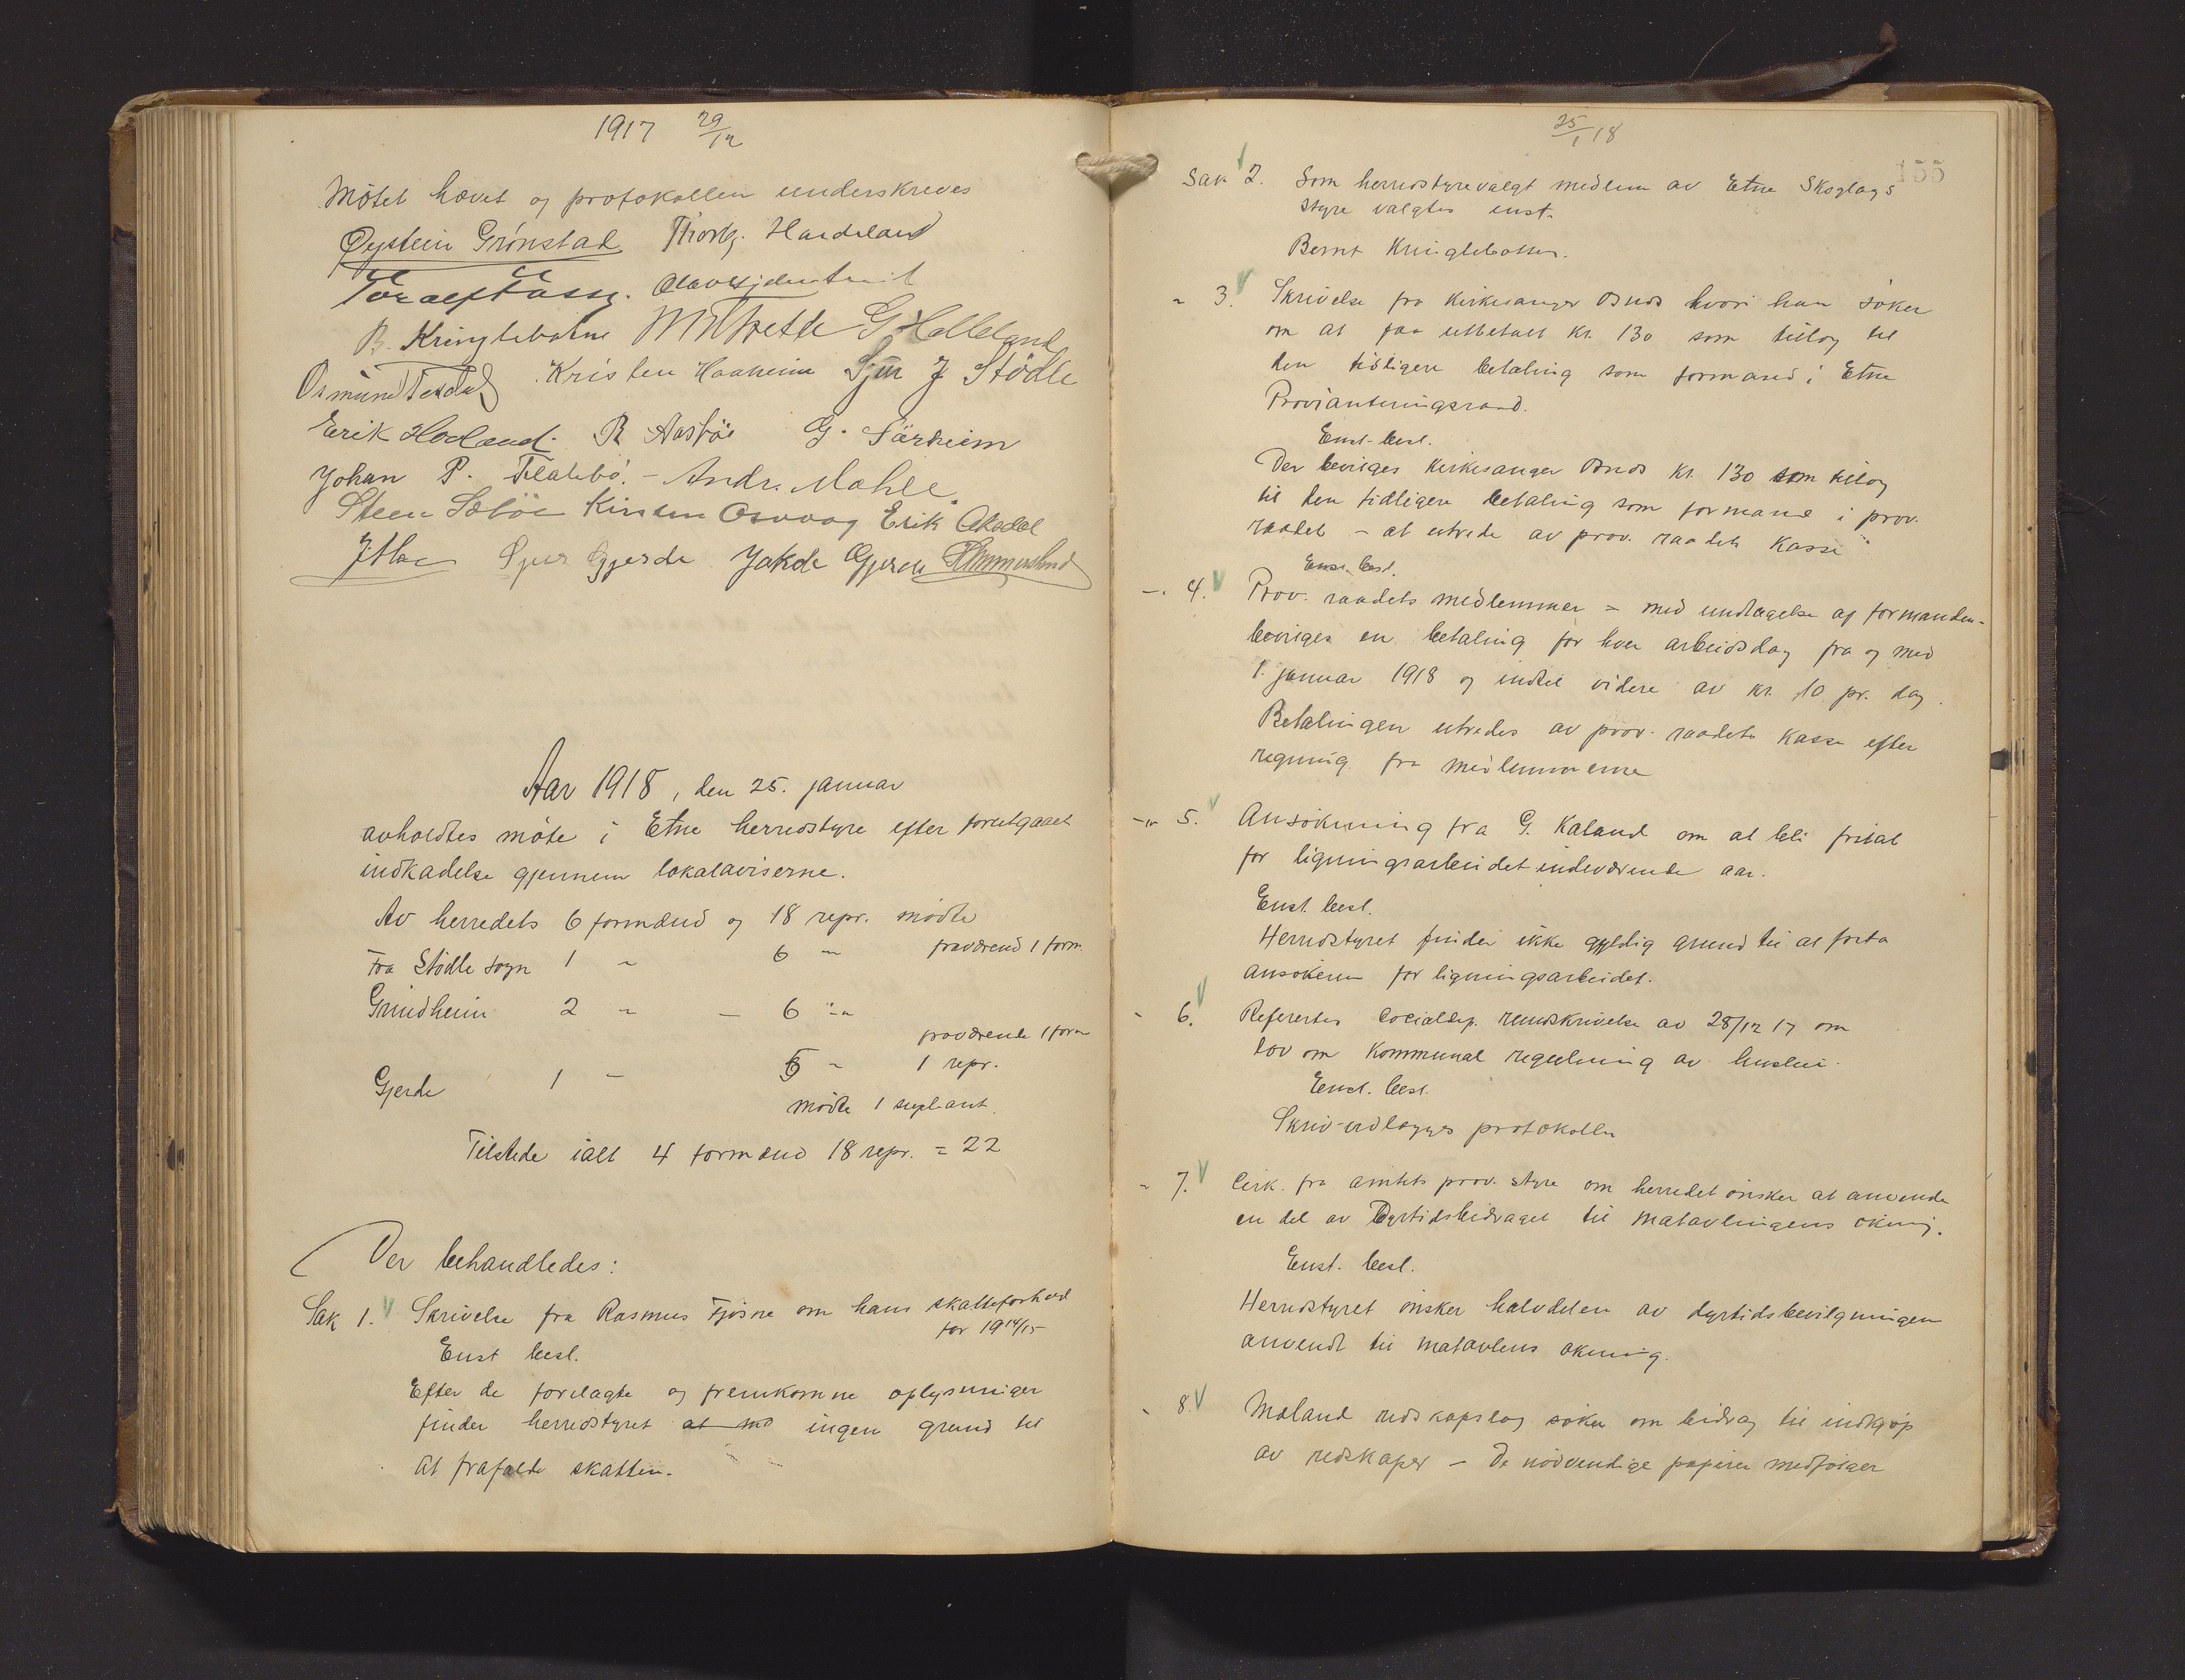 1917 29/12
Møtet hævet og protokollen underskreves
Øystein Grønstad Thorbj. Handeland
B. Kringlebotne G Halleland
Kristen Haaheim Sjur J Stödle
Erik Hovland. R Aasbøe G. Särheim
Johan P. Andr. Mæhle.
Steen Sæbøe Erik Aksdal
Sjur Gjerde Jakob Gjerde
Aar 1918, den 25. januar
avholdtes møte i Etne herredstyre efter forutgaaet
indkadelse gjennem lokalaviserne.
Av herredets 6 formænd og 18 repr. mødte
fraværend 1 form.
Fra Stødle sogn 1 " 6 "
Grindheim 2 " — 6 "
fraværende 1 form
Gjerde 1 " 6 " 1 repr.
mødte 1 supleant.
Tilstede ialt 4 formænd 18 repr. = 22
Der behandledes:
Sak 1. Skrivelse fra Rasmus Fjøsne om hans skatteforhold
for 1914/15
Enst besl.
Efter de forelagte og fremkomne oplysninger
finder herredstyret ingen grund til
at frafalde skatten.
25/1 18
155
Sak 2. Som herredstyrevalgt medlem av Etne Skoglags
styre valgtes enst.
Bernt Kringlebotten.
" 3. Skrivelse fra kirkesanger Osnes hvori han søker
om at faa utbetalt kr. 130 som tillæg til
den tidligere betaling som formand i Etne
Provianteringsraad.
Enst. besl.
Der bevilges kirkesanger Osnes kr. 130 som tillæg
til den tidligere betaling som formand i prov.
raadet – at utrede av prov. raadets kasse
Enst. besl.
—. 4. Prov. raadets medlemmer – med undtagelse af formanden -
bevilges en betaling for hver arbeidsdag fra og med
1. januar 1918 og indtil videre av kr. 10 pr. dag.
Betalingen utredes av prov. raadets kasse efter
regning fra medlemmerne
—" 5. Ansøkning fra G. Kaland om at bli fritat
for ligningsarbeidet indeværende aar.
Enst. besl.
Herredstyret finder ikke gyldig grund til at frita
ansøkeren for ligningsarbeidet.
" 6. Refereres Socialdep. rundskrivelse av 28/12 17 om
lov om kommunal regulering av husleie.
Enst. besl.
Skriv vedlægges protokollen
" 7. Cirk. fra amtets prov. styre om herredet ønsker at anvende
en del av Dyrtidsbidraget til matavlingens økning.
Enst. besl.
Herredstyret ønsker halvdelen av dyrtidsbevilgningen
anvendt til matavlens økning.
" 8. Mæland redskapslag søker om bidrag til indkjøp
av redskaper – De nødvendige papirer medfølger